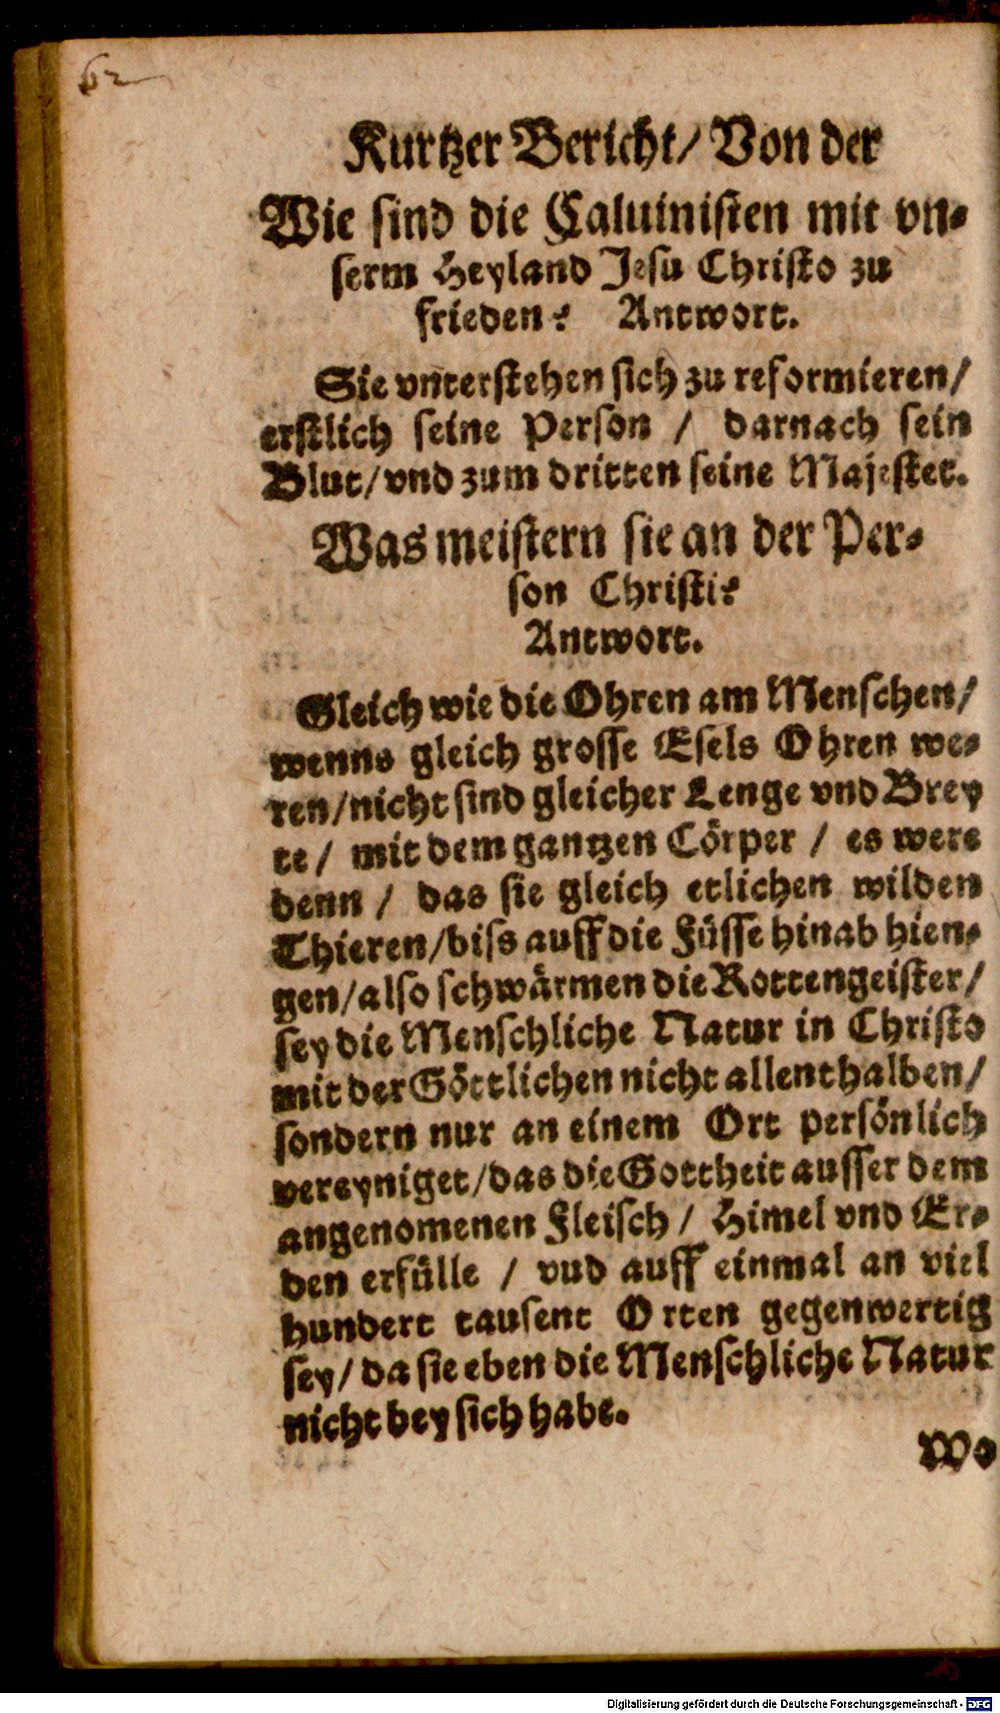 62
Kurtzer Bericht/ Von der
Wie sind die Caluinisten mit vn-
serm Heyland Jesu Christo zu
frieden? Antwort.
Sie vnterstehen sich zu reformieren/
erstlich seine Person / darnach sein
Blut/ vnd zum dritten seine Majestet.
Was meistern sie an der Per-
son Christi?
Antwort.
Gleich wie die Ohren am Menschen/
wenns gleich grosse Esels Ohren we-
ren/nicht sind gleicher Lenge vnd Brey
te/ mit dem gantzen Cörper / es were
denn / das sie gleich etlichen wilden
Thieren/biss auff die Füsse hinab hien-
gen/also schwärmen die Rottengeister/
sey die Menschliche Natur in Christo
mit der Göttlichen nicht allenthalben/
sondern nur an einem Ort persönlich
vereyniget/das die Gottheit ausser dem
angenomenen Fleisch / Himel vnd Er-
den erfülle / vud auff einmal an viel
hundert tausent Orten gegenwertig
sey/ da sie eben die Menschliche Natur
nicht bey sich habe.
Wo
Digitalisierung gefördert durch die Deutsche Forschungsgemeinschaft - DFG